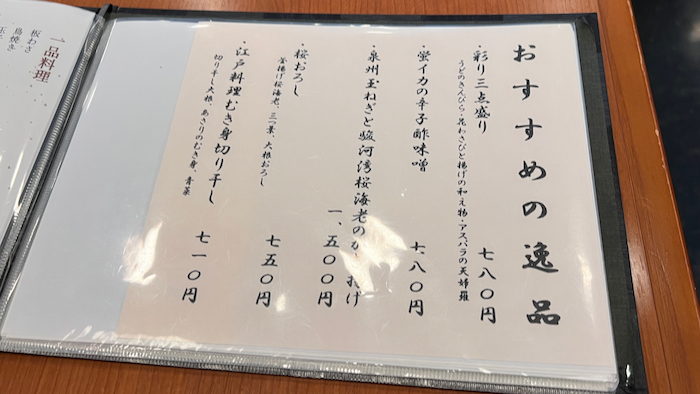 おすすめの逸品
・彩り三点盛り
うどのきんぴら・花わさびと揚げの和え物・アスパラの天婦羅
七八〇円
・蛍イカの辛子酢味噌
七八〇円
・泉州玉ねぎと駿河湾桜海老のかき揚げ
一、五〇〇円
・桜おろし
釜揚げ桜海老、三つ葉、大根おろし
七五〇円
・江戸料理むき身切り干し
切り干し大根、あさりのむき身、青菜
七一〇円
一品料理
板わさ